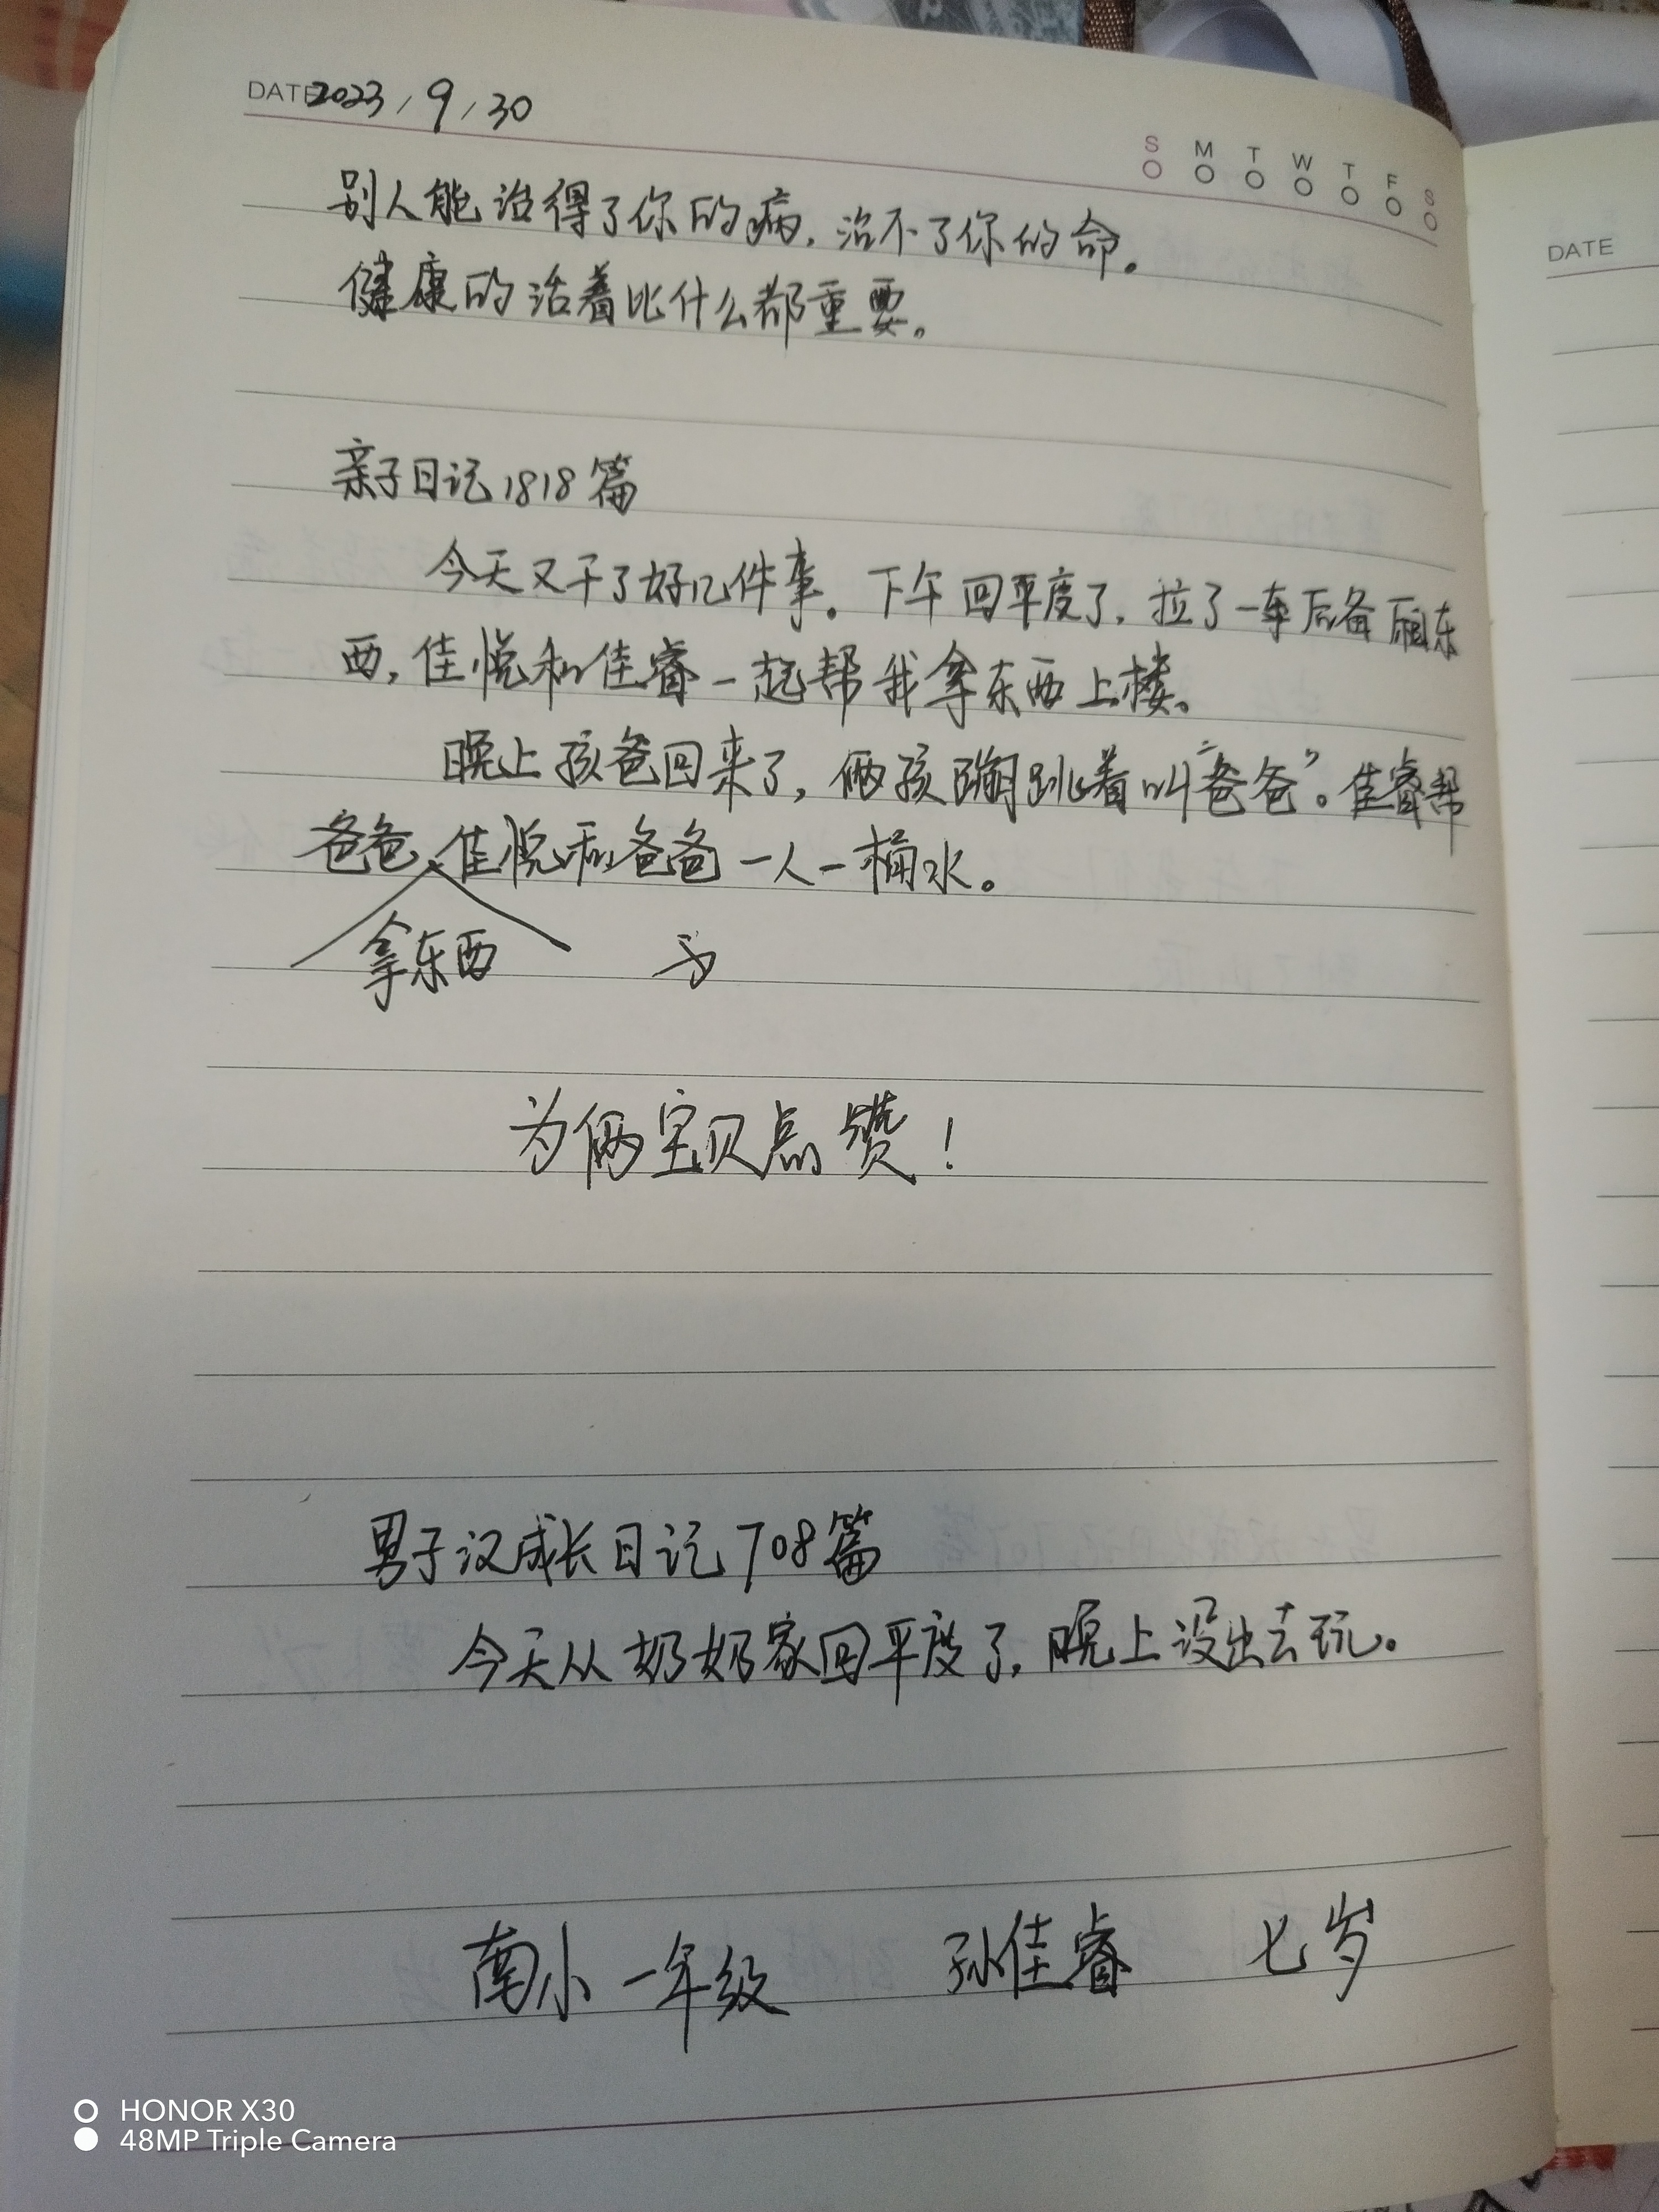 DATE 2023/9/30
S M T W T F S
别人能治得了你的病,治不了你的命。
健康的活着比什么都重要。
亲子日记1818篇
今天又干了好几件事。下午回平度了,拉了一车后备厢东
西,佳悦和佳睿一起帮我拿东西上楼。
晚上孩爸回来了,俩孩蹦跳着叫“爸爸”。佳睿帮
爸爸,佳悦和爸爸一人一桶水。
拿东西
为俩宝贝点赞!
男子汉成长日记708篇
今天从奶奶家回平度了,晚上没出去玩。
南小一年级 孙佳睿 七岁
DATE
HONOR X30
48MP Triple Camera